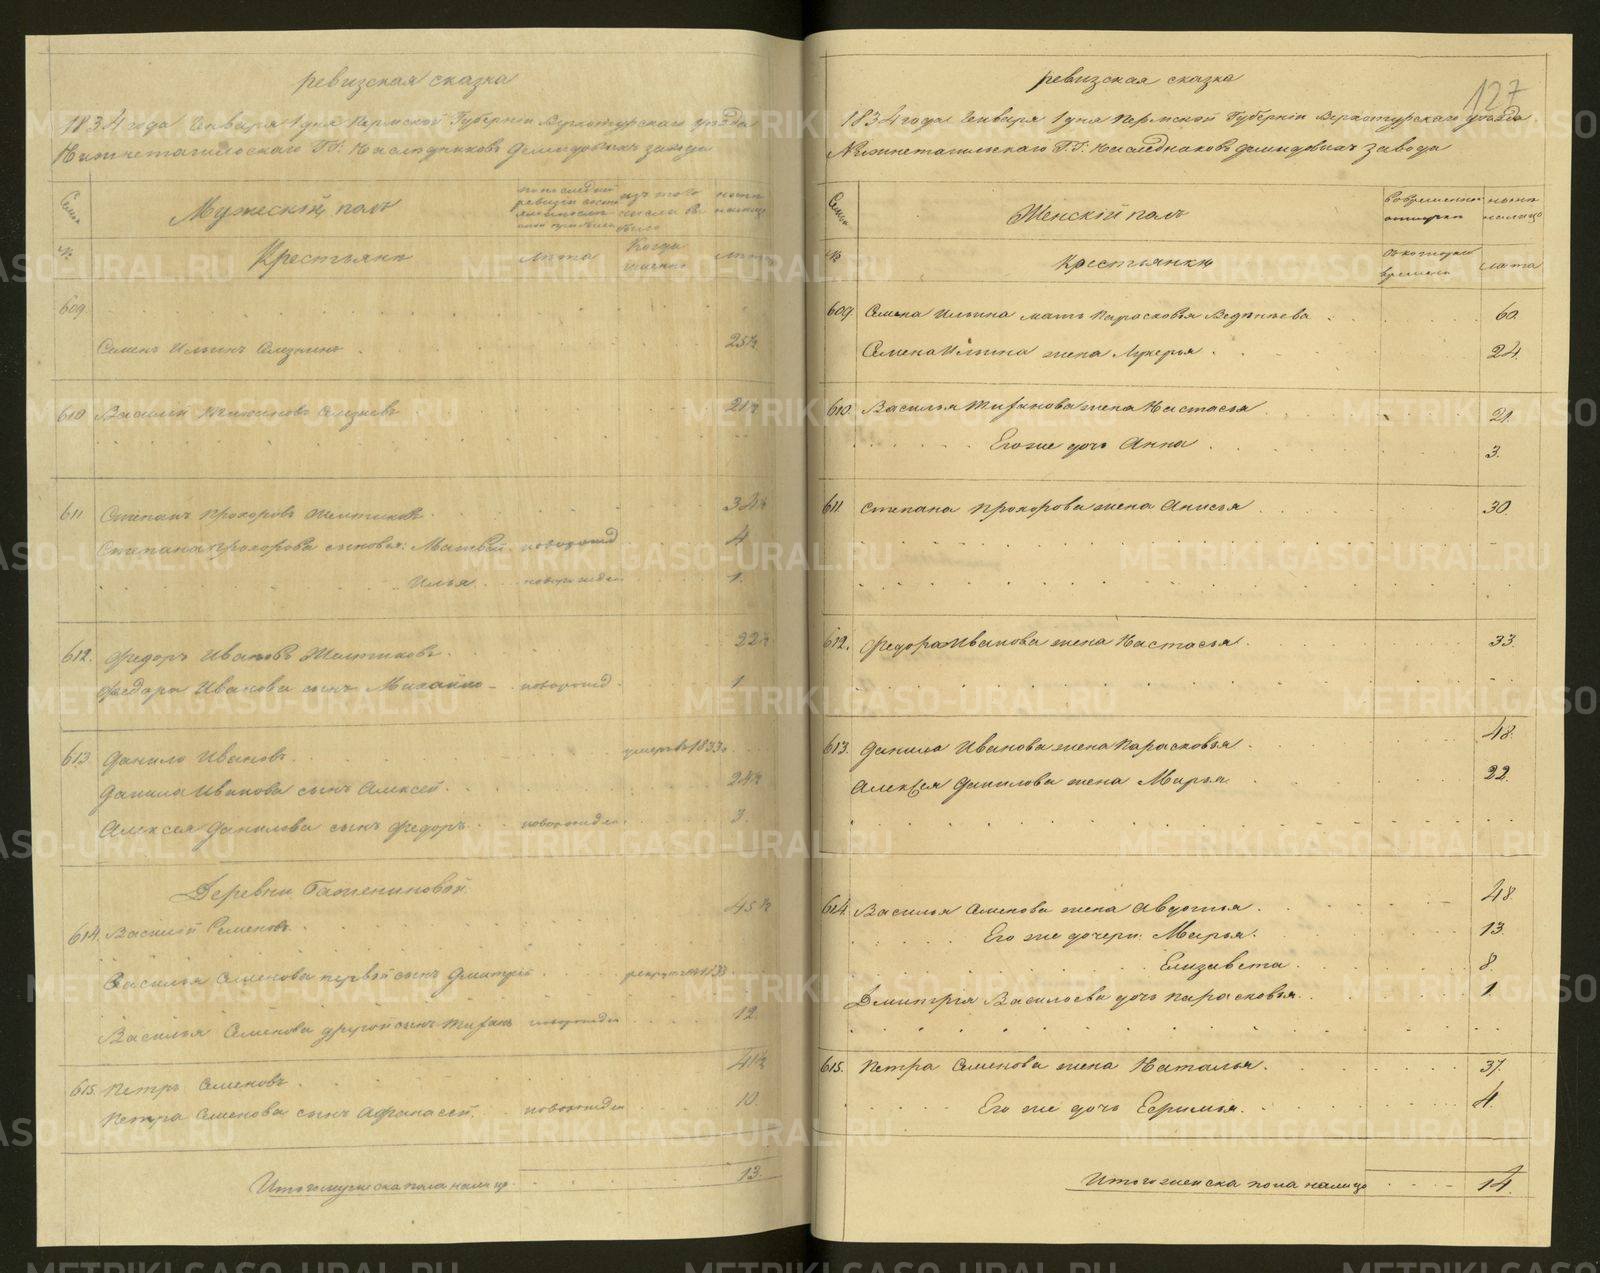 ревизская сказка
1834 года Генваря 1 дня Пермской Губернии Верхотурскаго уезда
Нижнетагильскаго Г.Г. Наследниковъ Демидовыхъ завода
Семьи
Мужеский полъ
№
Крестьяне
лета
Когда именно
лета
609.
Семенъ Ильинъ
25½
610
Василий
21½
611
Степанъ Прохоровъ
32½
Степана Прохорова сыновья: Матвей новорожд
4
Илья новорожден
1.
612.
Федоръ Ивановъ
22½
Федора Иванова сынъ Михайло - новорожд.
1
613.
Данило Ивановъ
умеръ въ 1833
Данила Иванова сынъ Алексей
24½
Алексея Данилова сынъ Федоръ новорожден
3.
Деревни
614.
Василий Семеновъ
45½
Василья Семенова первой сынъ Дмитрий
Василья Семенова другой сынъ
12.
615.
Петръ Семеновъ
41½
Петра Семенова сынъ Афанасей новорожден
10.
Итого мужеска пола налицо
13.
127
ревизская сказка
1834 года Генваря 1 дня Пермской Губернии Верхотурскаго уезда
Нижнетагильскаго Г.Г. Наследниковъ Демидовыхъ завода
Семьи
Женский полъ
ныне налицо
№
Крестьянки
лета
609.
Семена Ильина мать Парасковья
60.
Семена Ильина жена Лукерья
24.
610.
Василья жена Настасья
21.
Его же дочь Анна
3.
611.
Степана Прохорова жена Анисья
30.
612.
Федора Иванова жена Настасья
33.
613.
Данила Иванова жена Парасковья
48.
Алексея Данилова жена Марья
22.
614.
Василья Семенова жена Авдотья
48.
Его же дочери: Марья
13.
Елизавета
8.
Дмитрия Васильева дочь Парасковья
1
615.
Петра Семенова жена Наталья
37.
Его же дочь
4.
Итого женска пола налицо
14.
METRIKI.GASO-URAL.RU